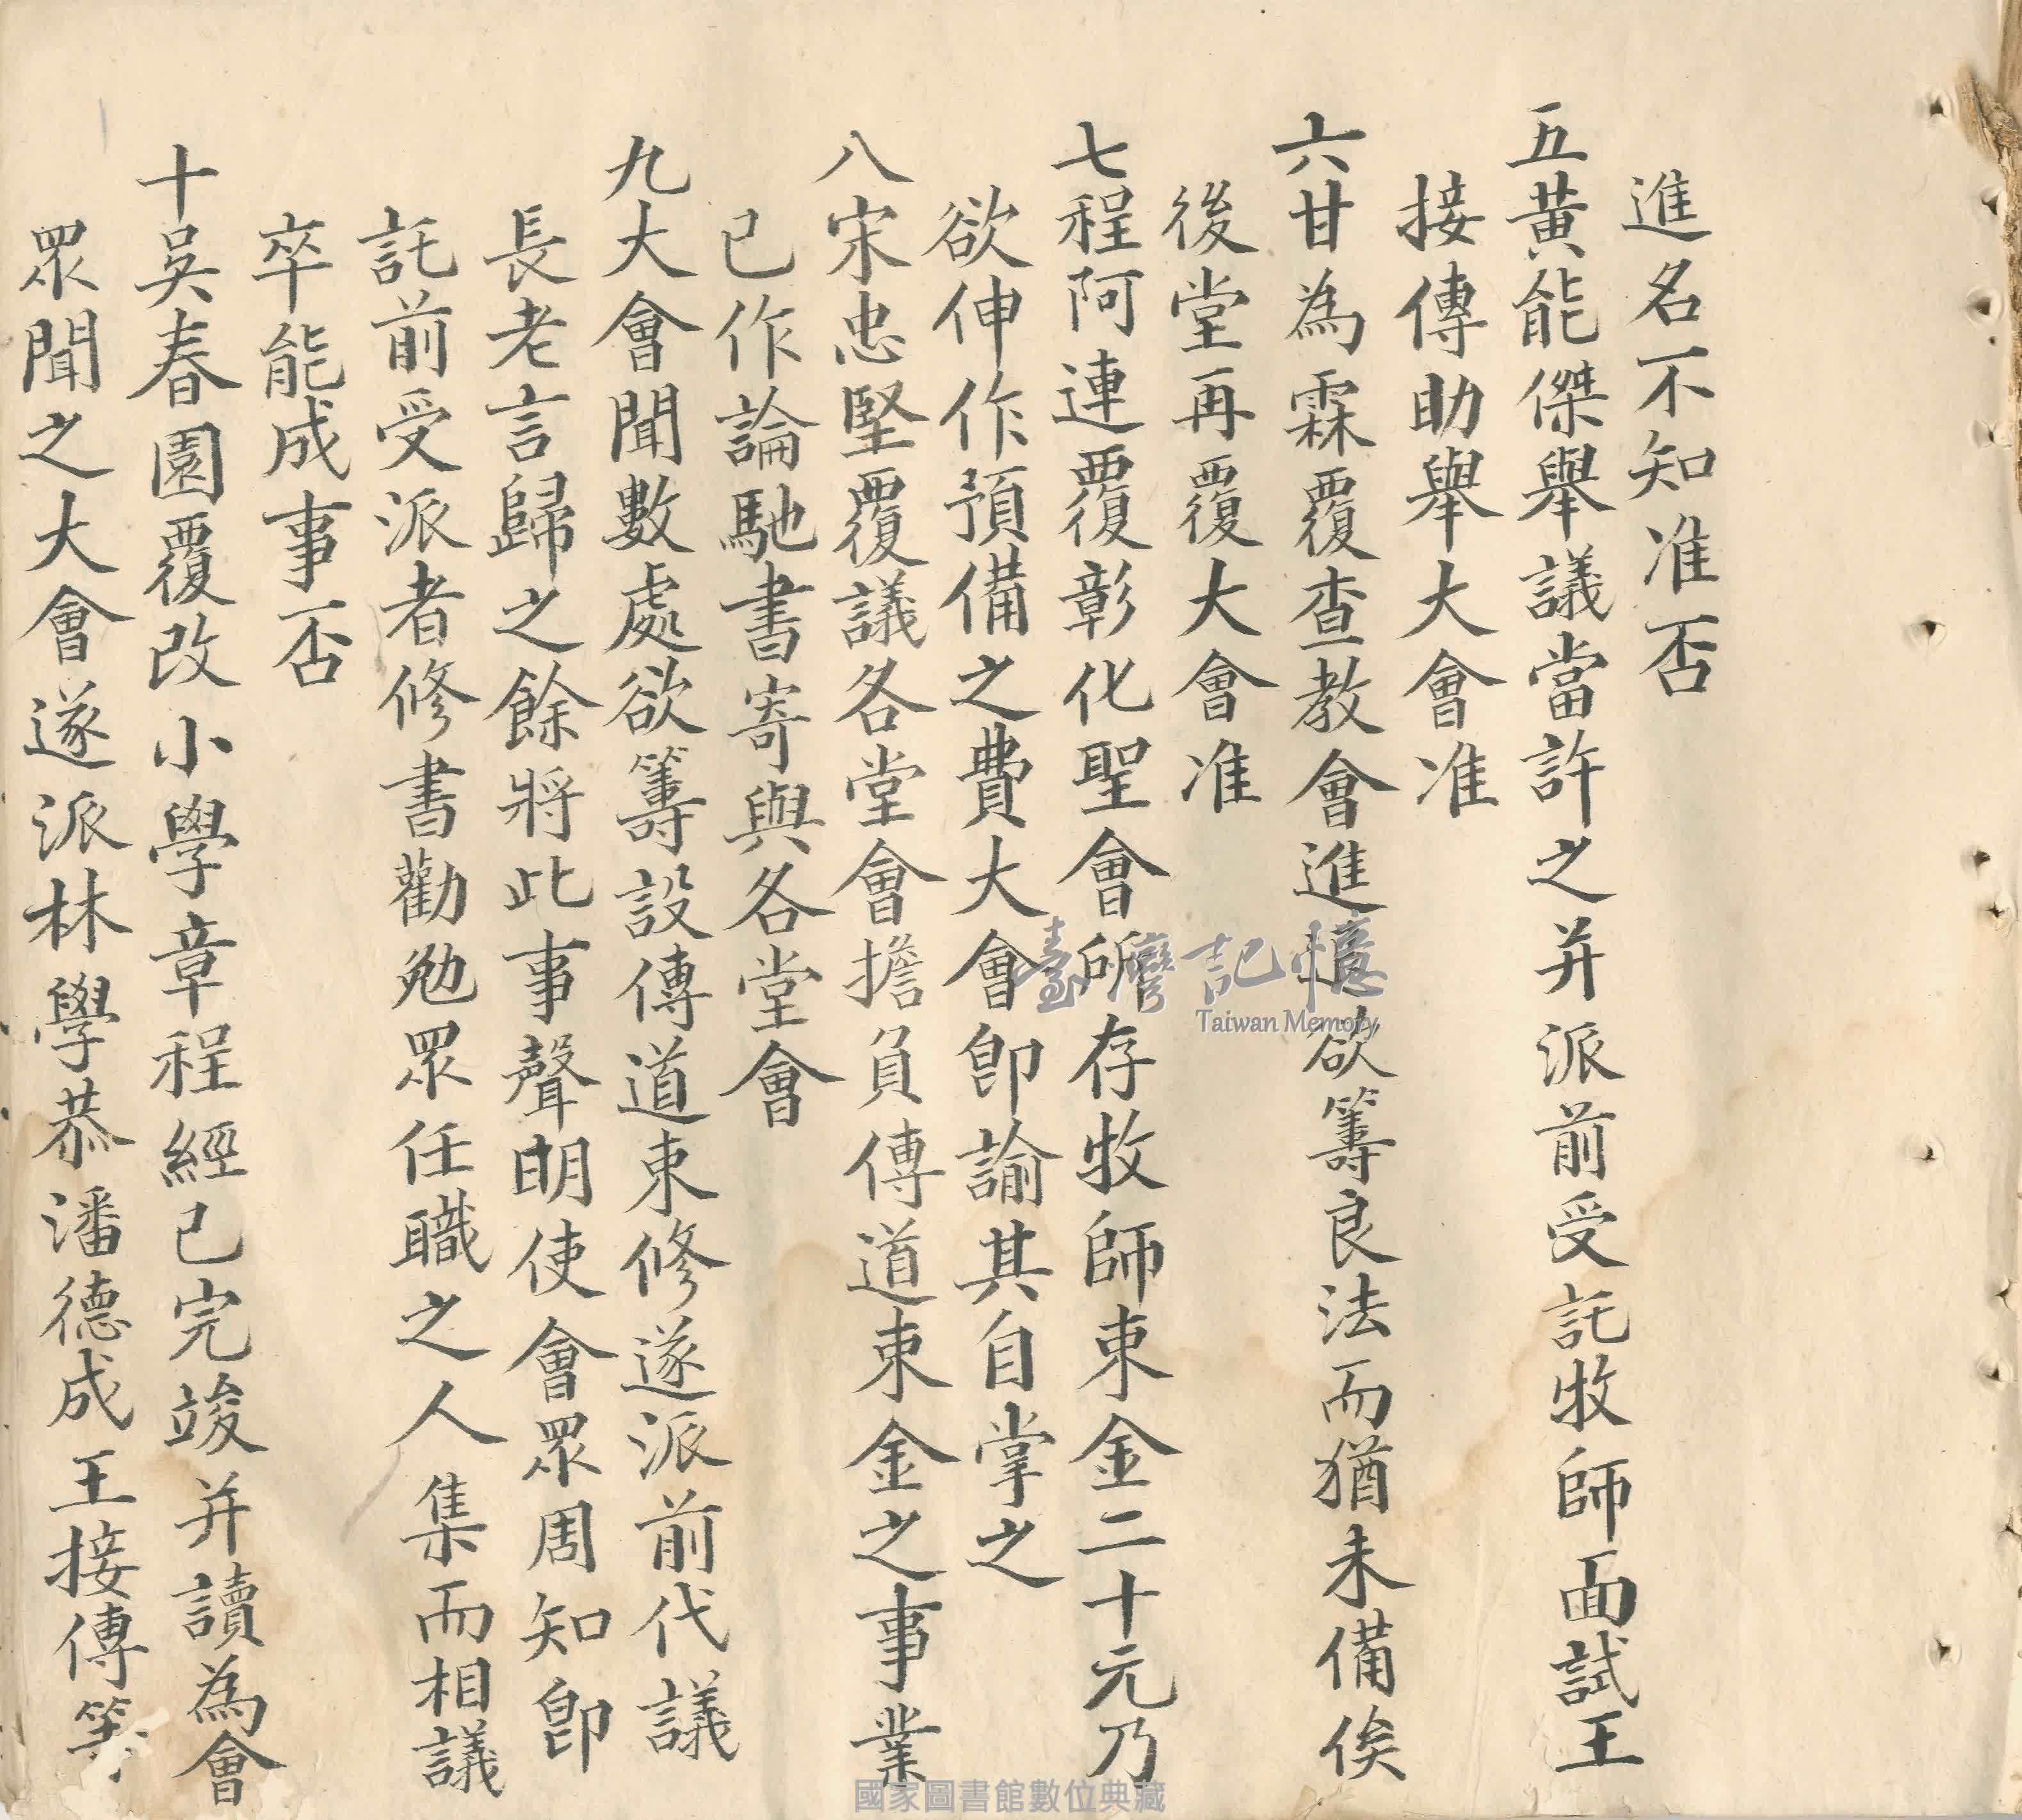 進名不知准否
五黃能傑舉議當許之并派前受託牧師面試王
接傳助舉大會准
六甘為霖覆查教會進憶欲籌良法而猶未備俟
後堂再覆大會准
七程阿連覆彰化聖會所存牧師束金二十元乃
欲伸作預備之費大會卽諭其自掌之
八宋忠堅覆議各堂會擔負傳道束金之事業
已作論馳書寄與各堂會
九大會聞數處欲籌設傳道束修遂派前代議
長老言歸之餘將此事聲明使會眾周知卽
託前受派者修書勸勉眾任職之人集而相議
卒能成事否
十吳春園覆改小學章程經已完竣并讀為會
眾聞之大會遂派林學恭潘德成王接傳等
臺灣記憶
Taiwan Memory
國家圖書館數位典藏